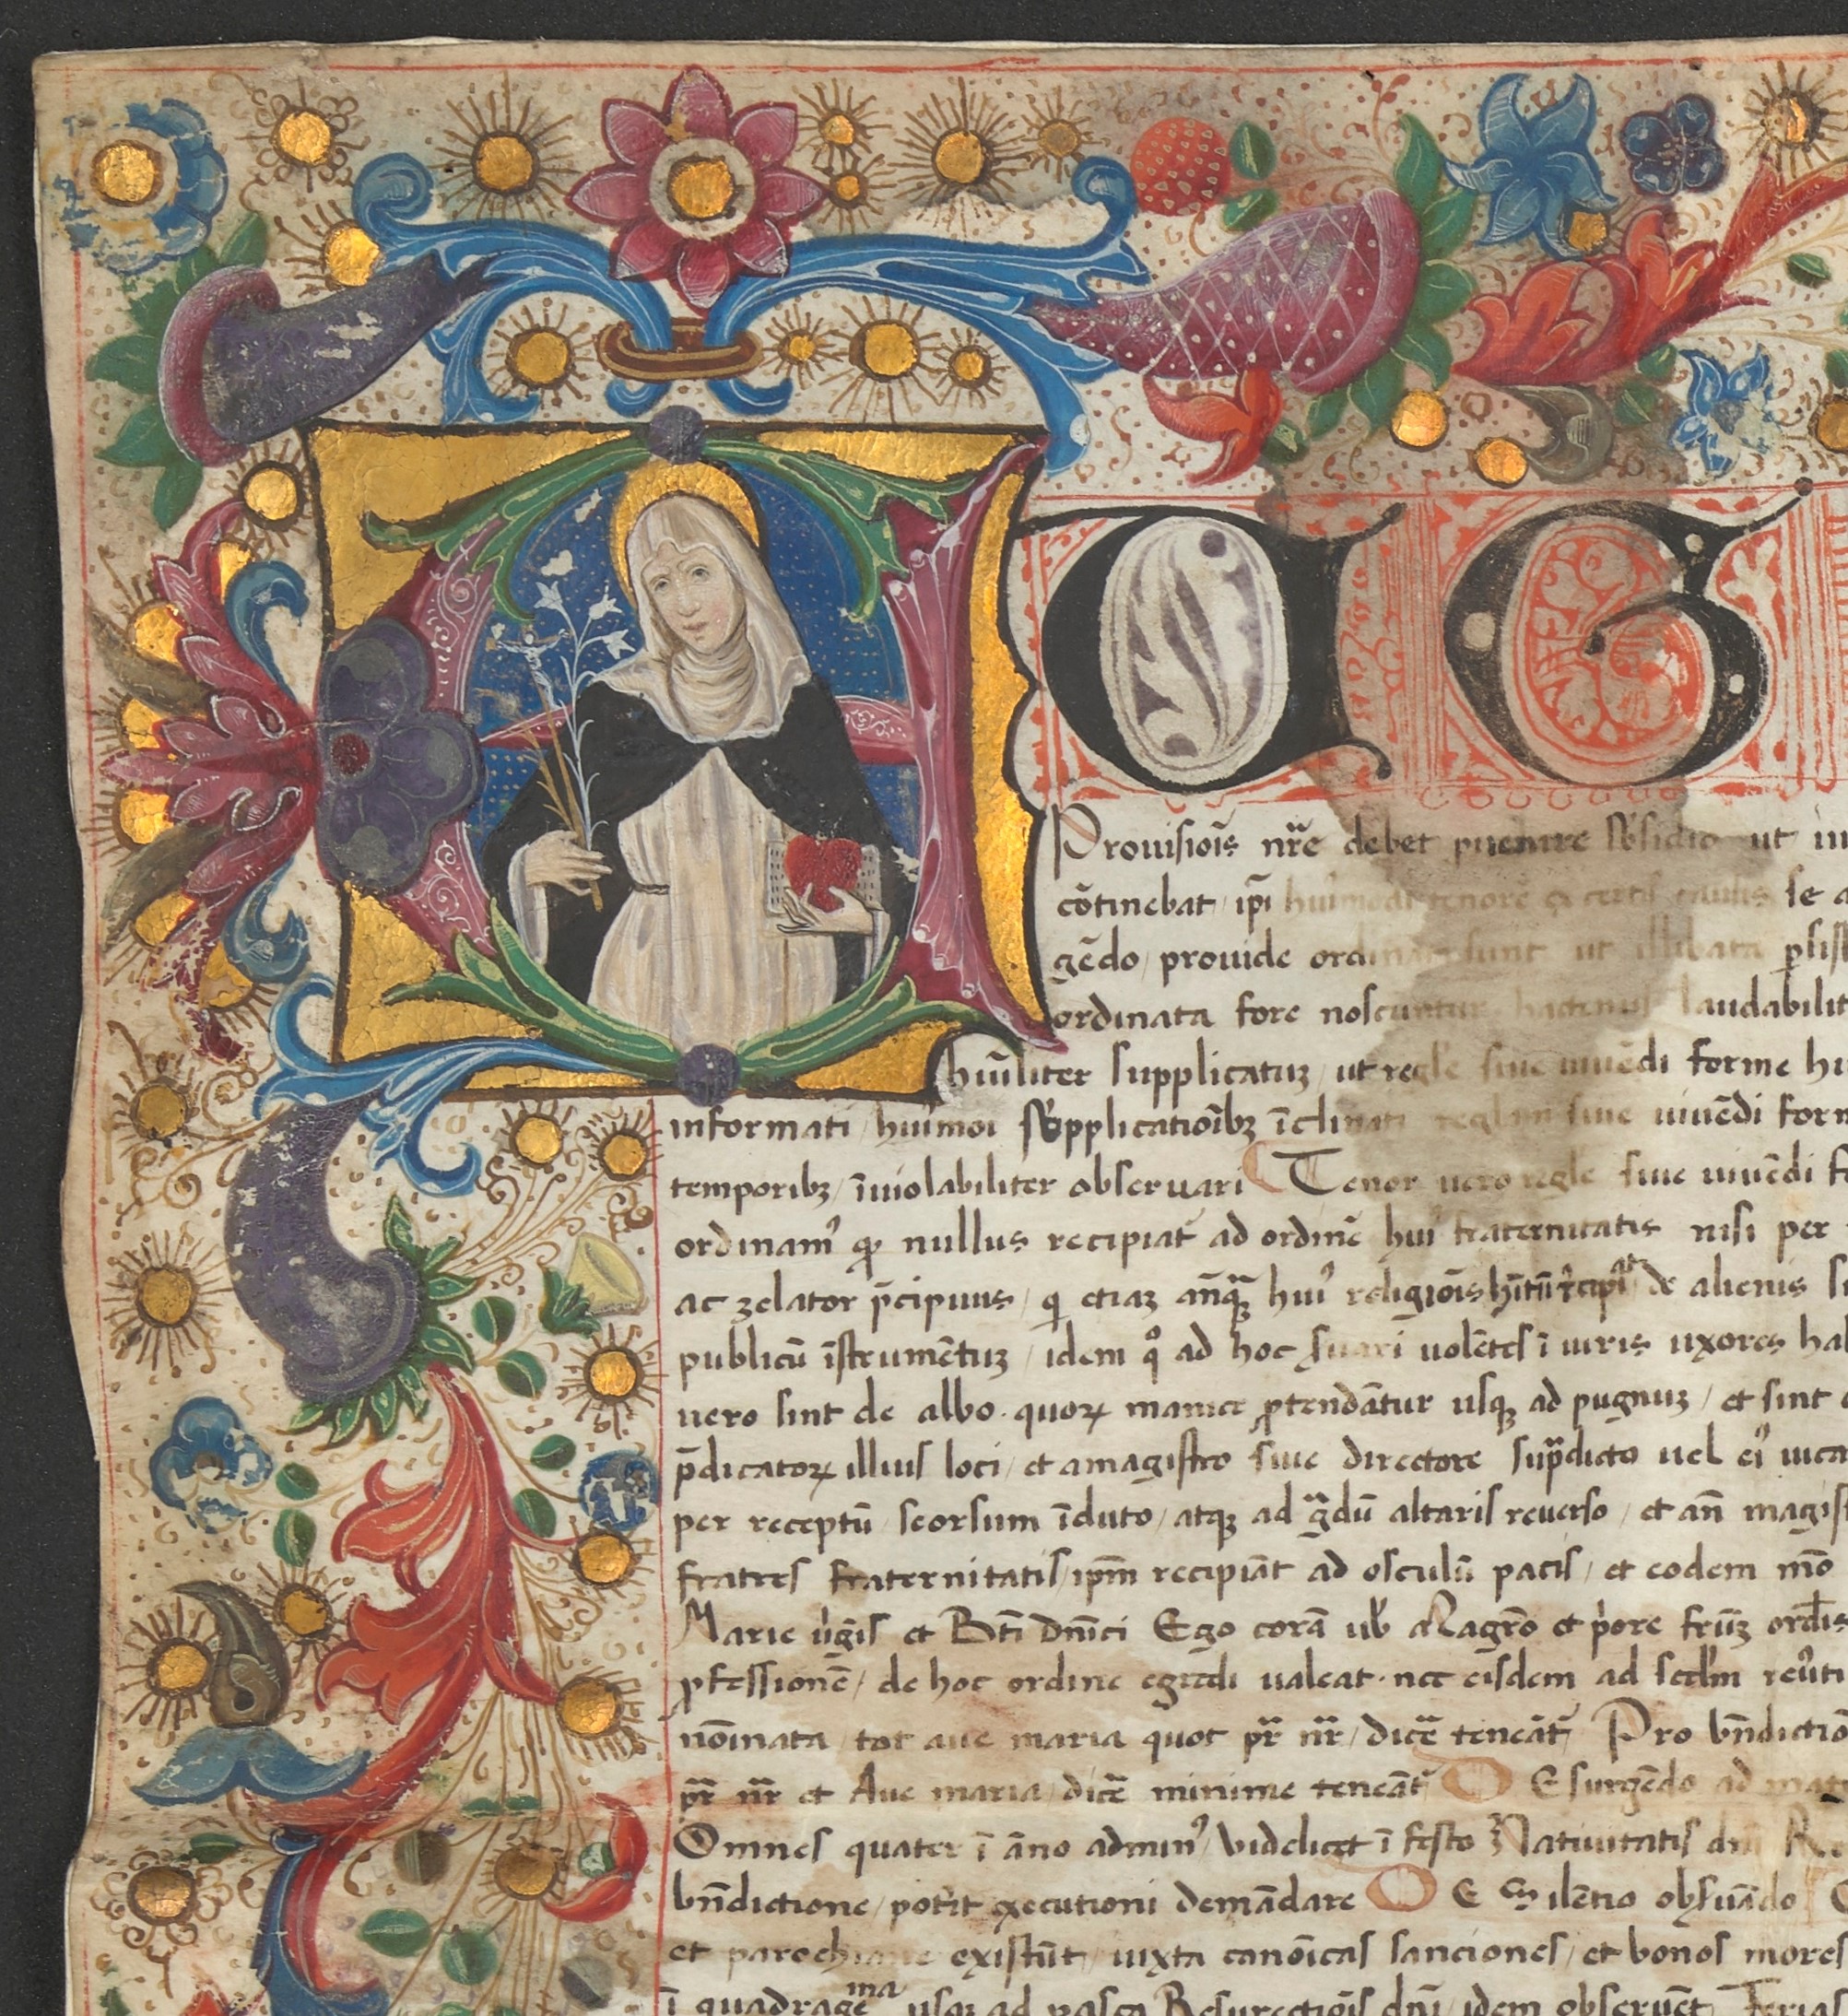 E U G
Prouisiois nr̄e debet puenire s̄bsidio ut iu
cōtinebat ip̄i hui'modi tenore ex certis causis se a
gēdo prouide ordinata sunt ut illibata p̱sist
ordinata fore noscuntur hactenus laudabilit
hūiliter supplicatuȝ ut regle siue uiuēdi forme hu
informati hui'moi supplicatiōibȝ īclinati reglam siue uiuēdi form
temporibȝ īuiolabiliter obseruari Tenor uero regle siue uiuēdi fo
ordinam' qꝫ nullus recipiat̄ ad ordinē hui' fraternitatis nisi per
ac ȝelator p̄cipuus qi etiaȝ anq̄ȝ hui' religiōis de alienis
publicū īstrumētuȝ idem qͦ ad hoc uolētes ī uiris uxores hab
uero sint de albo quoꝝ manice ꝓtendātur usqꝫ ad pugnuȝ et sint
p̄dicatoꝝ illius loci et a magistro siue directore sup̄dicto uel ei' uica
per receptū seorsum īduto atqꝫ ad g̾dū altaris reuerso et an̄ magis
fratres fraternitatis ip̄m recipiāt ad osculū pacis et eodem mō
Marie uīgīs et Bt̄i Dn̄ici Ego corā uob̄ Magr̄o et p̾ore fr̄uȝ ord̄is
ꝓfessionē de hoc ordine egredi ualeat nec eisdem ad sec̄lm reuīti
nōinata tot aue maria quot pr̄ nr̄ dic̄e teneāt̄ Pro bn̄dictiō
pr̄ nr̄ et Aue maria dic̄e minime teneāt̄ De surgēdo ad mat
Omnes quater ī āno admin' Videlicet ī festo Natiuitatis dn̄i Re
bn̄dictione pot̄it executioni demādare De Silētio obs̄uādo
et parochiane existūt iuxta canōicas sanciones et bonos mores
ī quadrageᵐᵃ usqꝫ ad pasca Resurectiōis dn̄i idem obseruēt Feria